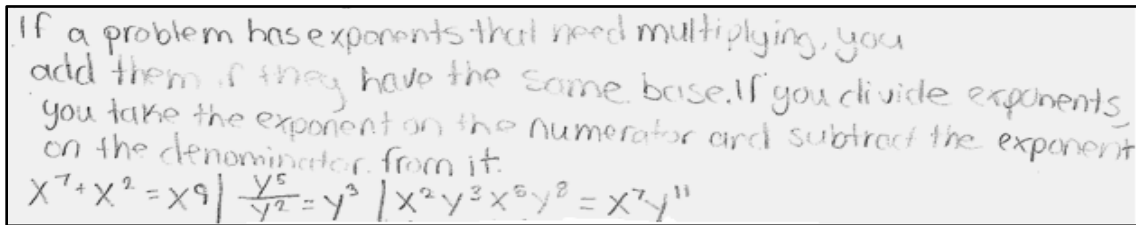 If a problem has exponents that need multiplying, you
add them if they have the same base. If you divide exponents,
you take the exponent on the numerator and subtract the exponent
on the denominator from it.
x⁷+x²=x9| y⁵/y²=y³ |x²y³x⁵y⁸=x⁷y¹¹